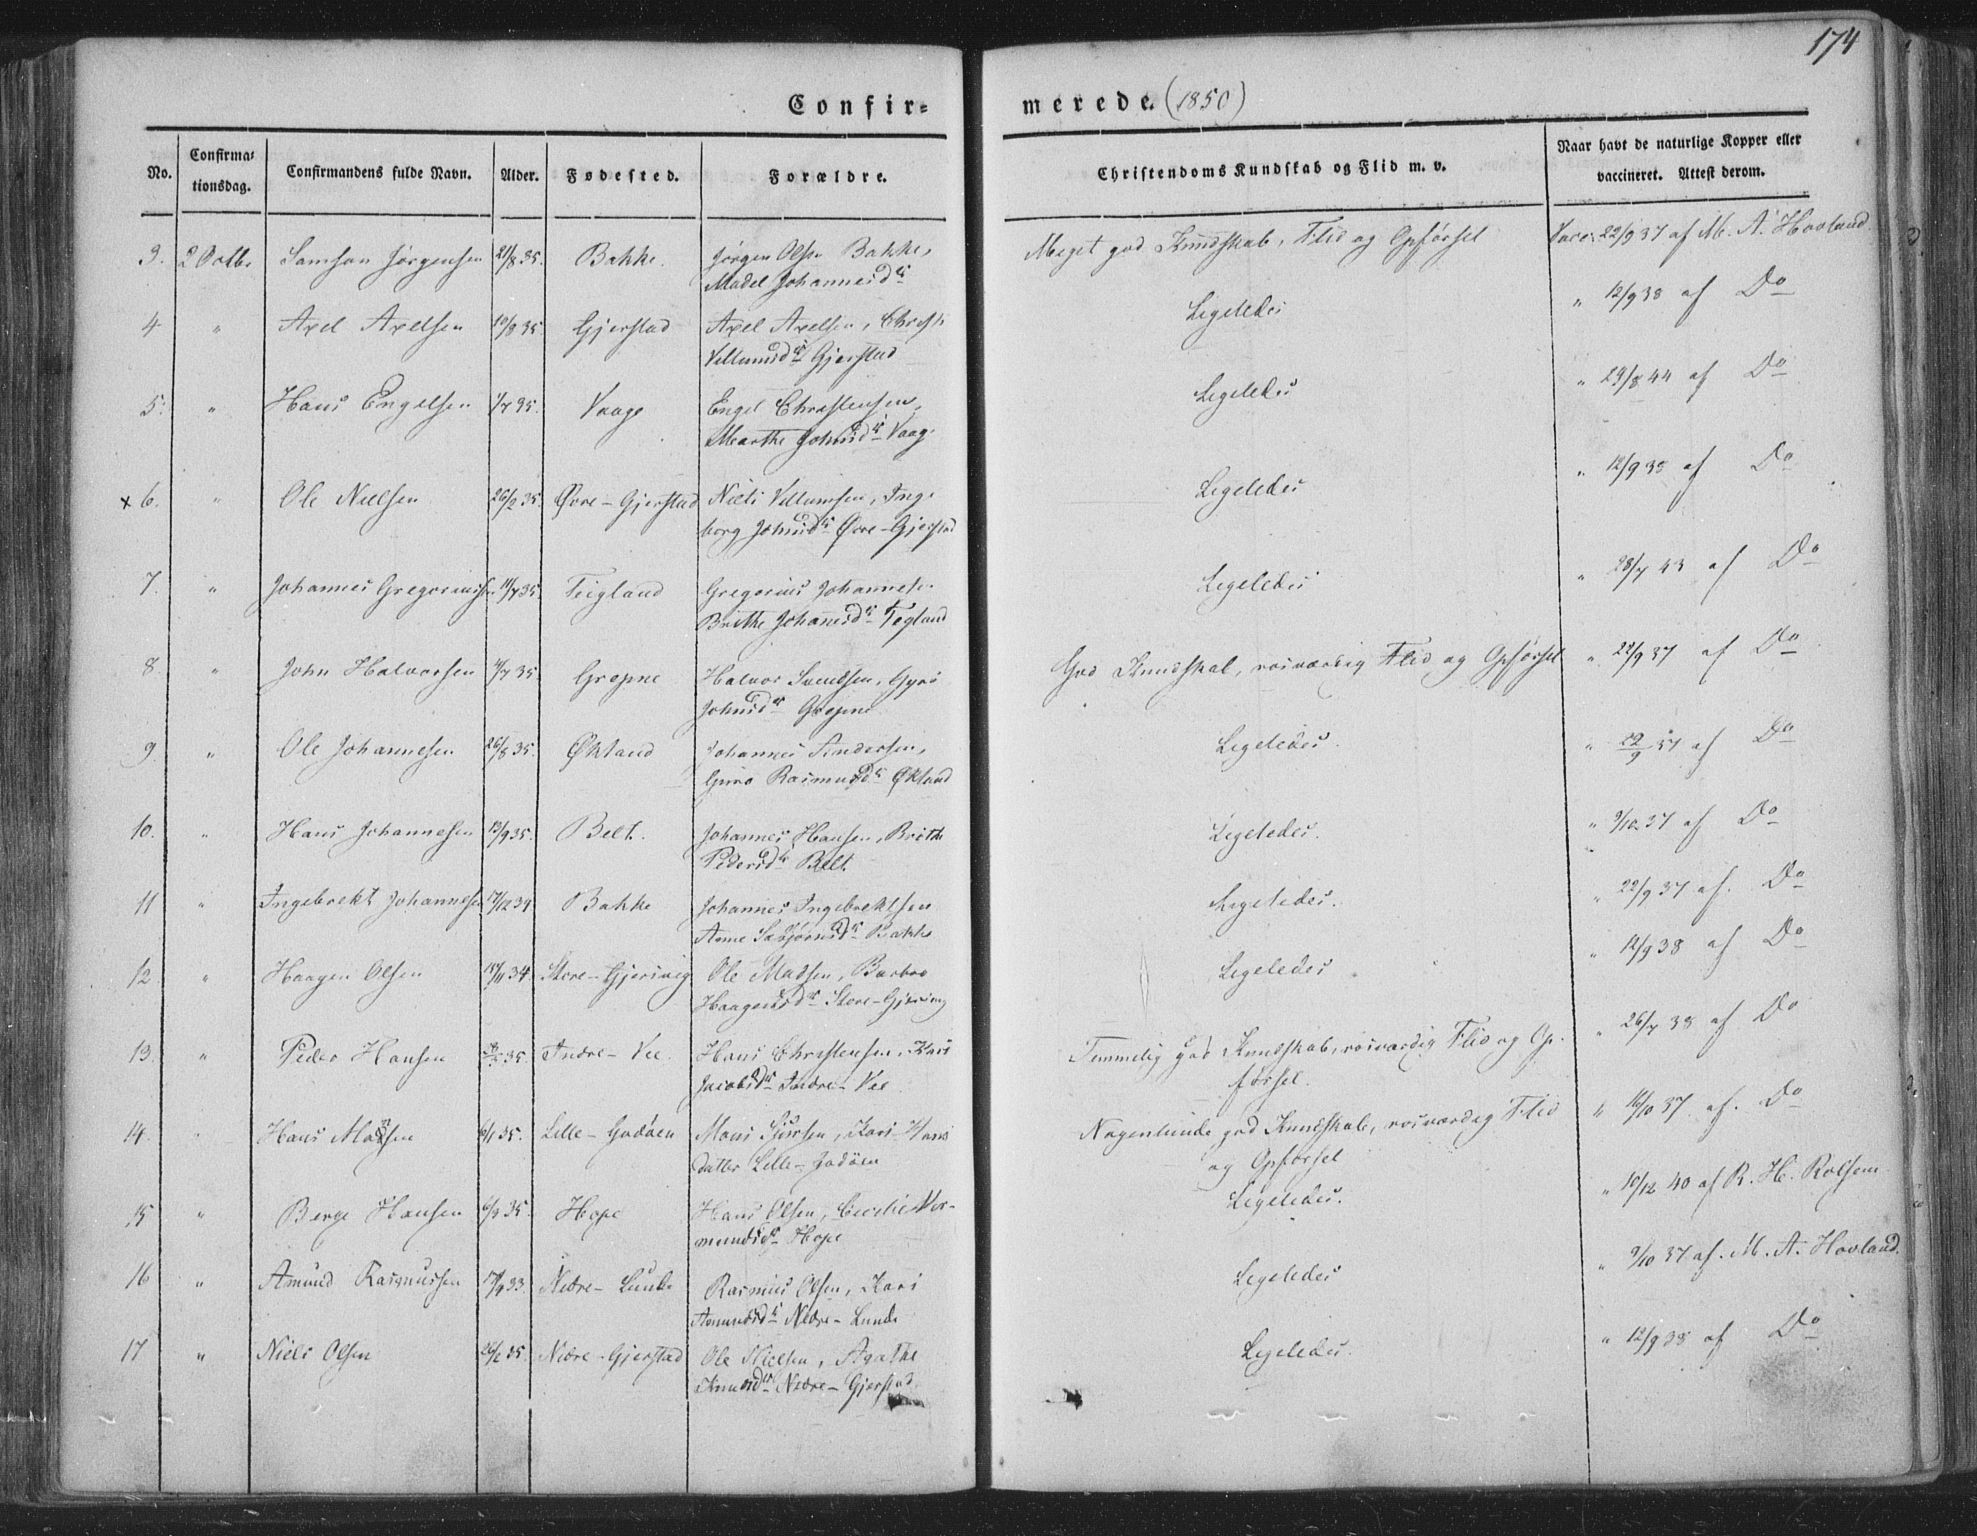 174
Confir= merede. (1850)
No. Confirma= tionsdag. Confirmandens fulde Navn. Alder. Fødested. Forældre. Christendoms Kundskab og Flid m. v. Naar havt de naturlige Kopper eller vaccineret. Attest derom.
3. 2 Octbr Samson Jørgensen 21/8 35. Bakke. Jørgen Olsen Bakke, Meget god Kundskab, Flid og Opførsel Vacc. 22/9 37 af M. A. Hovland
Madel Johannesdr
4 " Axel Axelsen 10/8 35 Gjerstad Axel Axelsen, Christi Ligeledes " 12/9 38 af Do
Villumsdr Gjerstad
5. " Hans Engelsen 1/7 35. Vaage Engel Christensen, Ligeledes " 29/8 44 af Do
Marthe Johnsdr Vaag
x 6. " Ole Nielsen 26/2 35. Øvre-Gjerstad Niels Villumsen, Inge Ligeledes " 12/9 38 af Do
borg Johnsdr Øvre-Gjerstad
7. " Johannes Gregoriussen 11/7 35. Teigland Gregorius Johannes. Ligeledes " 28/7 43 af Do
Brithe Johannesdr Tegland
8. " John Halvorsen 4/7 35. Gropne Halvor Svendsen, Gyro God Kundskab, rosværdig Flid og Opførsel " 22/9 37 af Do
Johnsdr Gropne
9. " Ole Johannesen 26/8 35. Økland Johannes Andersen, Ligeledes. " 22/9 37 af Do
Guro Rasmusdr Økland
10. " Hans Johannesen 13/9 35. Belt. Johannes Hansen, Brithe Ligeledes. " 9/10 37 af Do
Pedersdr Belt
11 " Ingebrekt Johannesen 17/12 34 Bakke Johannes Ingebrektsen Ligeledes. " 22/9 37 af. Do
Anne Sæbjørnsdr Bakke
12 " Haagen Olsen 18/11 34. Store-Gjerivig Ole Madsen, Barbro Ligeledes " 12/9 38 af Do
Haagensdr Store-Gjerivig
13. " Peder Hansen 35. Indre-Vee. Hans Christensen, Kari Temmelig god Kundskab, rosværdig Flid og Op- " 26/7 38 af Do
Jacobsdr Indre-Vee førsel.
14. " Hans Monsen 6/1 35. Lille-Godøen Mons Sjursen, Kari Hans Nogenlunde god Kundskab, rosværdig Flid " 10/10 37. af. Do
datter Lille-Godøen og Opførsel
15 " Berge Hansen 6/3 35. Hope Hans Olsen, Cecilie Ver- Ligeledes. " 10/12 40 af R. H. Rolfsen
mundsdr Hope
16 " Amund Rasmussen 17/9 33. Nedre-Lunde Rasmus Olsen, Kari Ligeledes " 9/10 37 af. M. A. Hovland.
Amundsdr Nedre-Lunde
17 " Niels Olsen 26/2 35. Nedre-Gjerstad Ole Nielsen, Agathe Ligeledes. " 12/9 38 af Do
Knudsdr Nedre-Gjerstad.